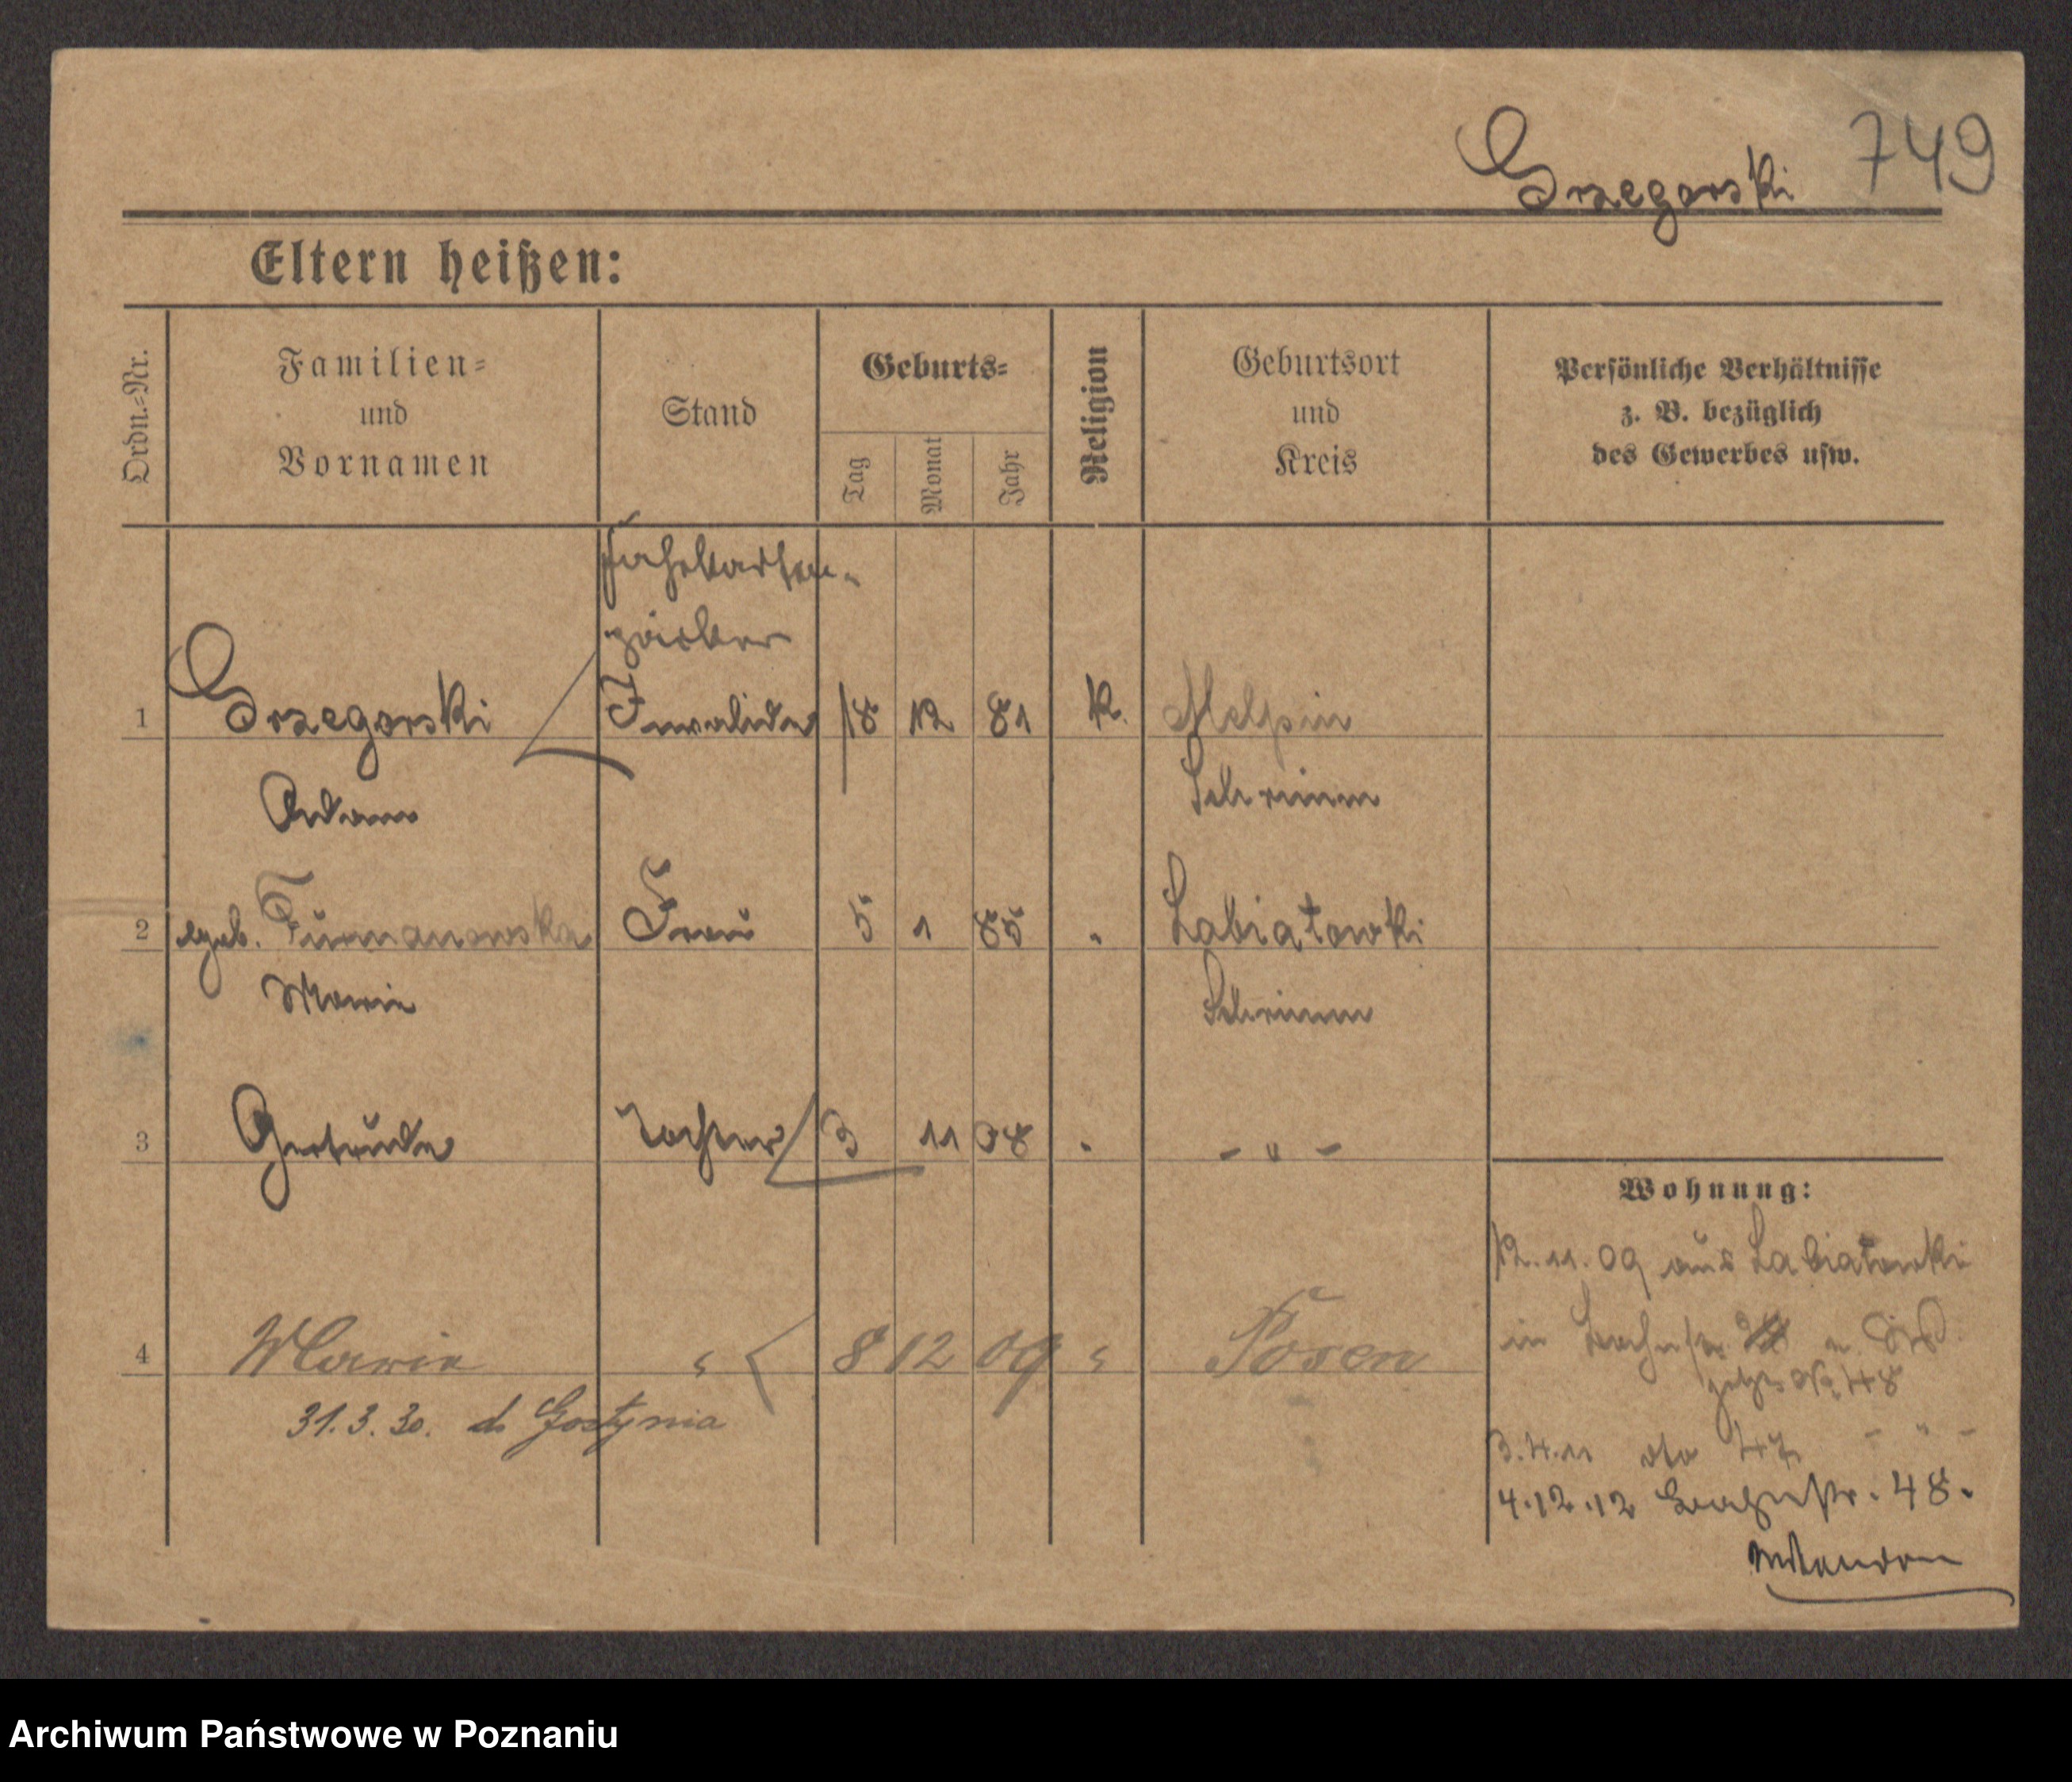 Grzegorski 749
Eltern heißen:
Ordn.-Nr.
Familien-
und
Vornamen
Stand
Geburts-
Tag
Monat
Jahr
Religion
Geburtsort
und
Kreis
Persönliche Verhältnisse
z. B. bezüglich
des Gewerbes usw.
Fahrkarten-
1 Grzegorski Invalide 18 12 81 k. Mełpin
Adam Schrimm
2 geb. Furmanowska Frau 5 1 85 " Labiatowki
Marie Schrimm
3 Gertrude Tochter 3 11 08 " - " -
Wohnung:
12.11.09 aus Labiatowki
4 Maria " 8 12 09 " Posen
in
48
31.3.30. do Gostynia
3.4.11 dto 47 - " -
4.12.12 Bahnstr. 48.